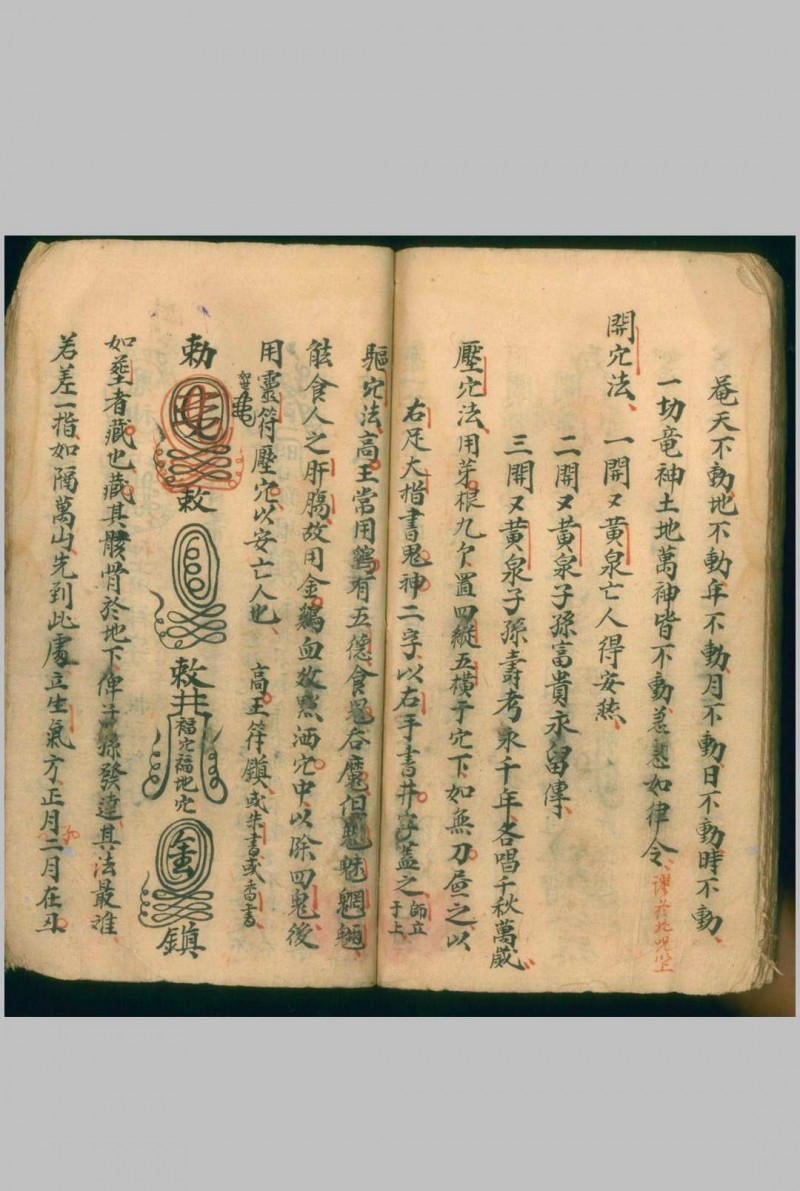 菴天不動地不動年不動月不動日不動時不動
一切竜神土地萬神皆不動急急如律令
開穴法一開又黃泉亡人得安然
二開又黃泉子孫富貴永留傳
三開又黃泉子孫壽考永千年各唱千秋萬歲
壓穴法用芽根九个置四縱五橫于穴下如無刀畫之以
右足大指書鬼神二字以右手書井字蓋之師立于上
驅穴法高王常用鷄有五德食鬼吞魔但魑魅魍魎
能食人之肝腸故用金鷄血放點洒穴中以除四鬼後
用靈符壓穴以安亡人也 高王符鎮或朱書或香書
勅
敕
敕井
福穴福地穴
金
鎮
如塟者藏也藏其骸骨於地下俾子孫發達其法最难
若差一指如隔萬山先到此處立生氣方正月二月在丑